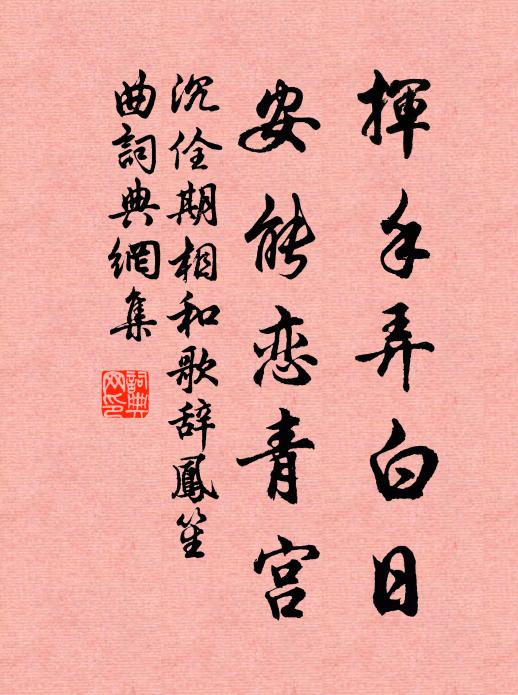 揮手弄白日
安能恋青宫
沉佺期相和歌辞鳳笙
曲詞典網集
詞典
网印